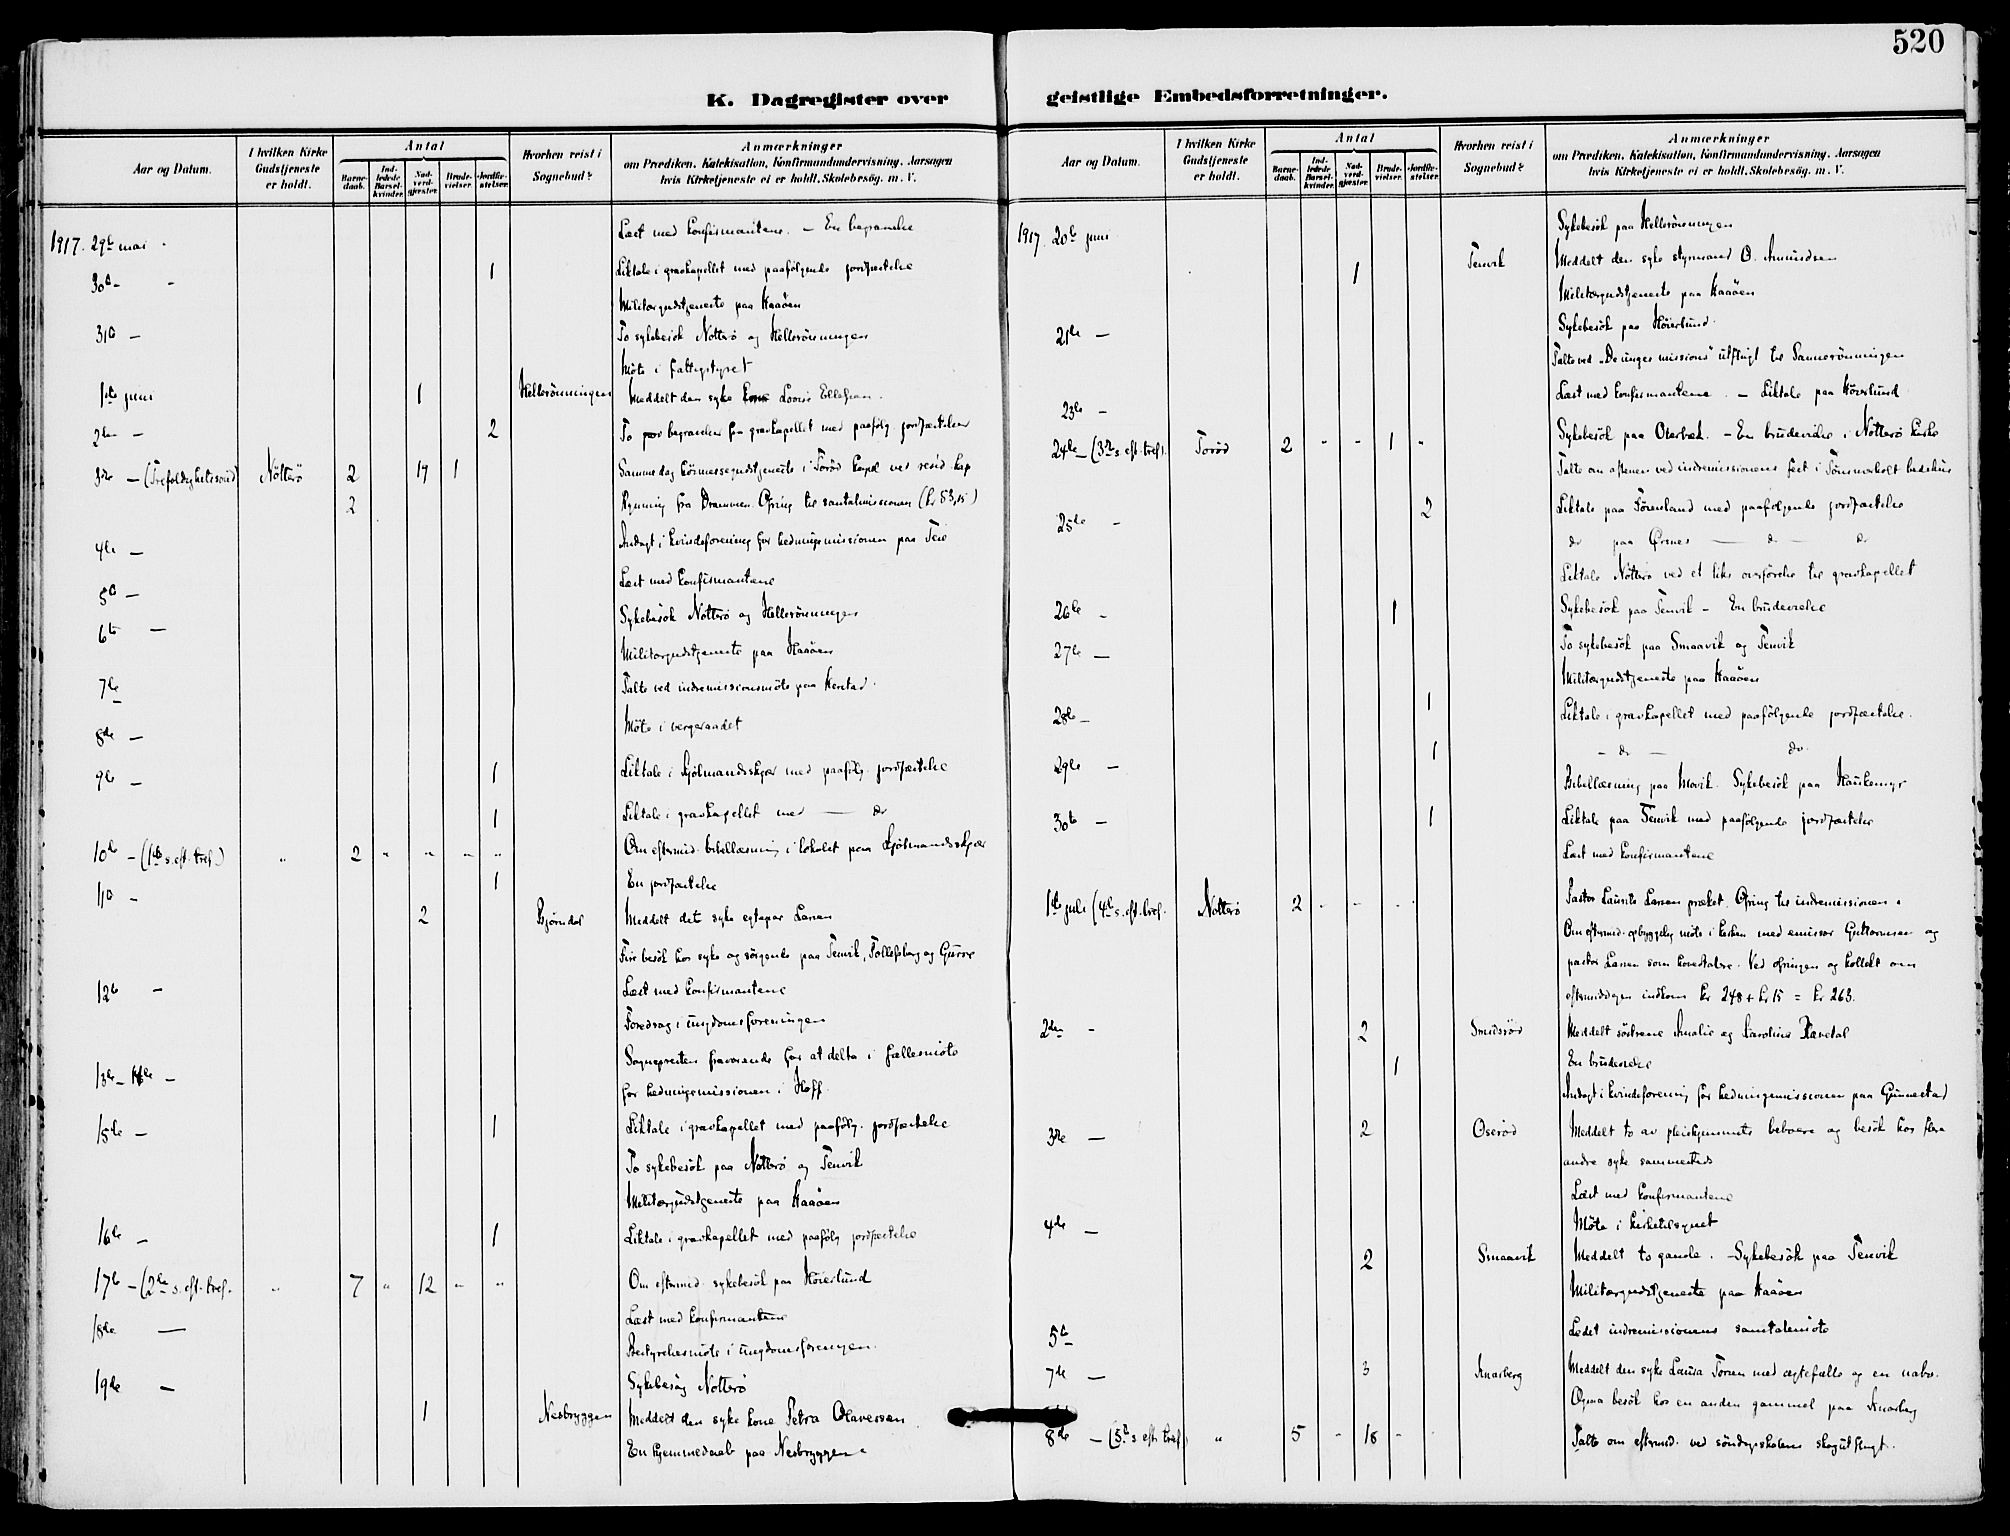 520
K. Dagregister over
geistlige Embedsforretninger.
Aar og Datum.
I hvilken Kirke Gudstjeneste er holdt.
Antal
Barne-daab.
Ind-ledede Barsel-kvinder.
Nad-verd-gjæster.
Brude-vielser.
Jordfæ-stelser.
Hvorhen reist i Sognebud?
Anmærkninger
om Prædiken, Katekisation, Konfirmandundervisning, Aarsagen
hvis Kirketjeneste ei er holdt, Skolebesøg, m. V.
1917. 29de mai Læst med konfirmantene. – En begravelse
30te – 1 Liktale i gravkapellet med paafölgende jordfæstelse
Militærgudstjeneste paa Haaöen
31te – To sykebesök Nötterö og Hellerönningen
Möte i fattigstyret
1ste juni 1 Hellerönningen Meddelt den syke Lovise Ellefsen.
2den – 2 To begravelser fra gravkapellet med paafölg. jordfæstelser
3die – (Trefoldighetssönd) Nötterö 2 19 1 Samme dag höimessegudstjeneste i Torød kapel ved resid. kap
2 Rynning fra Drammen. Ofring til santalmissionen (kr 53,15)
4de – Andagt i kvindeforening for hedningemissionen paa Teie
5te – Læst med konfirmantene
6te – Sykebesök Nötterö og Hellerönningen
Militærgudstjeneste paa Haaöen
7de – Talte ved indremissionsmöte paa Herstad.
8de – Möte i vergeraadet
9de – 1 Liktale i Fjölmandsskjær med paafölg. jordfæstelse
1 Liktale i gravkapellet med — do
10de – (1ste s. eft. tref.) " 2 " " " " Om eftermid. bibellæsning i lokalet paa Fjölmandsskjær
11te – 1 En jordfæstelse
2 Bjørndal Meddelt det syke egtepar Larsen
Fire besök hos syke og sörgende paa Tenvik, Tollefsberg og
12te – Læst med konfirmantene
Foredrag i ungdomsforeningen
13de – 14de – Sognepresten fraværende for at delta i fællesmöte
for hedningemissionen i Hoff.
15de – 1 Liktale i gravkapellet med paafölg. jordfæstelse
To sykebesök paa Nötterö og Tenvik
Militærgudstjeneste paa Haaöen
16de – 1 Liktale i gravkapellet med paafölg jordfæstelse
17de – (2den s. eft. tref. " 7 " 12 " " Om eftermid. sykebesök paa Höierlund
18de — Læst med konfirmantene
Bestyrelsesmöte i ungdomsforeningen.
19de – Sykebesög Nötterö
1 Nesbryggen Meddelt den syke kone Petra Olavesen
En hjemmedaab paa Nesbryggen
Aar og Datum.
I hvilken Kirke Gudstjeneste er holdt.
Antal
Barne-daab.
Ind-ledede Barsel-kvinder.
Nad-verd-gjæster.
Brude-vielser.
Jordfæ-stelser.
Hvorhen reist i Sognebud?
Anmærkninger
om Prædiken, Katekisation, Konfirmandundervisning, Aarsagen
hvis Kirketjeneste ei er holdt, Skolebesøg, m. V.
1917. 20de juni Sykebesök paa Hellerönningen
1 Tenvik Meddelt den syke styrmand O. Amundsen
Militærgudstjeneste paa Haaöen
21de – Sykebesök paa Höierlund.
Talte ved „De unges missions" utflugt til Sannerönningen
23de – Læst med konfirmantene. – Liktale paa Höierlund
24de – (3die s. eft. tref). Torød 2 " " 1 " Sykebesök paa Oterbæk. – En brudevielse i Nötterö kirke
Talte om aftenen ved indremissionens fest i Tömmerholt bedehus
25de – 2 Liktale paa Förenland med paafölgende jordfæstelse
do paa Ørsnes — do — do
Liktale Nötterö ved et liks overförelse til gravkapellet
26de – 1 Sykebesök paa Tenvik – En brudevielse
27de – To sykebesök paa Smaavik og Tenvik
Militærgudstjeneste paa Haaöen
28de – 1 Liktale i gravkapellet med paafölgende jordfæstelse.
29de – 1 – do — do.
Bibellæsning paa Movik. Sykebesök paa Haukemyr
30te – 1 Liktale paa Tenvik med paafölgende jordfæstelse
Læst med konfirmantene
1ste juli (4de s. eft. tref. Nötterö 2 " " " Pastor Laurits Larsen præket. Ofring til indremissionen.
Om eftermid. opbyggelig möte i kirken med emissær Guttormsen og
pastor Larsen som hovedtalere. Ved ofringen og kollekt om
eftermiddagen indkom kr 248 + kr 15 = kr 263.
2den – 2 Smidsröd Meddelt söstrene Amalie og Karoline
1 En brudevielse
Andagt i kvindeforening for hedningemissionen paa Gunnestad
3die – 2 Oseröd Meddelt to av pleiehjemmets beboere og besök hos flere
andre syke sammesteds
Læst med konfirmantene
4de – Möte i kirketilsynet
2 Smaavik Meddelt to gamle. – Sykebesök paa Tenvik
Militærgudstjeneste paa Haaöen
5te – Ledet indremissionens samtalemöte
7de – 3 Snarberg Meddelt den syke Laura med egtefælle og en nabo.
Ogsaa besök hos en anden gammel paa Snarberg
8de – (5te s. eft. tref) " 5 " 18 " Talte om eftermid. ved söndagsskolens skogutflugt.